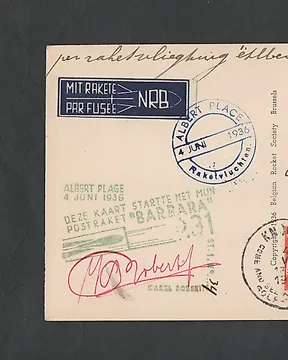 per raketvliegtuig
MIT RAKETE
PAR FUSÉE
NRB
ALBERT PLAGE
4 JUNI 1936
Raketvluchten.
Copyright 1936 Belgian Rocket Society Brussels
ALBERT PLAGE
4 JUNI 1936
DEZE KAART STARTTE MET MIJN
POSTRAKET "BARBARA"
R31
KAREL ROBERTI
COME AND